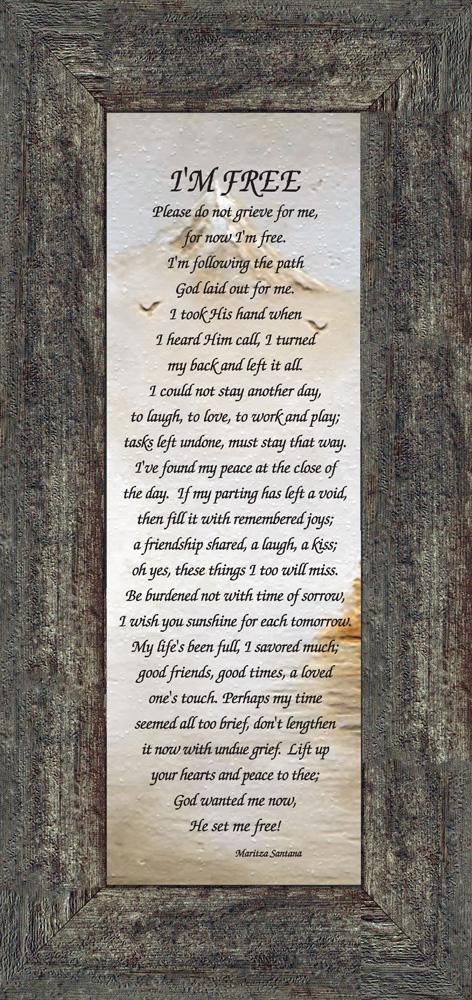 I'M FREE
Please do not grieve for me,
for now I'm free.
I'm following the path
God laid out for me.
I took His hand when
I heard Him call, I turned
my back and left it all.
I could not stay another day,
to laugh, to love, to work and play;
tasks left undone, must stay that way.
I've found my peace at the close of
the day.  If my parting has left a void,
then fill it with remembered joys;
a friendship shared, a laugh, a kiss;
oh yes, these things I too will miss.
Be burdened not with time of sorrow,
I wish you sunshine for each tomorrow.
My life's been full, I savored much;
good friends, good times, a loved
one's touch. Perhaps my time
seemed all too brief, don't lengthen
it now with undue grief.  Lift up
your hearts and peace to thee;
God wanted me now,
He set me free!
Maritza Santana